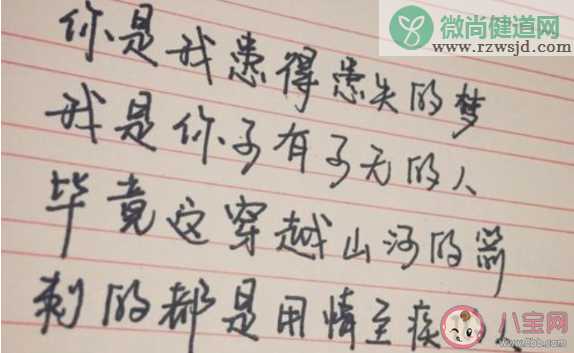 微尚健道网
www.rzwsjd.com
你是我患得患失的梦
我是你可有可无的人
毕竟这穿越山河的箭
刺的都是用情至疾人
八宝网